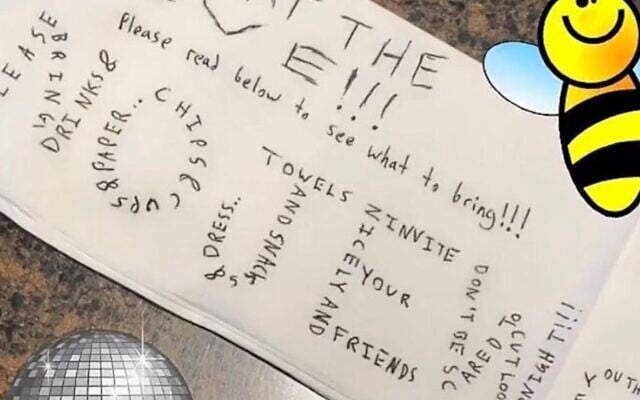 T THE
E!!!
Please read below to see what to bring!!!
LEASE
BRING
DRINKS &
CHIPS & CUPS
& PAPER..
TOWELS
AND SNACK
S
& DRESS..
NICELY AND
INVITE
YOUR
FRIENDS
DON'T BE SC
ARED
TO CUT LOOT
NIGHT!!!
YOUTH